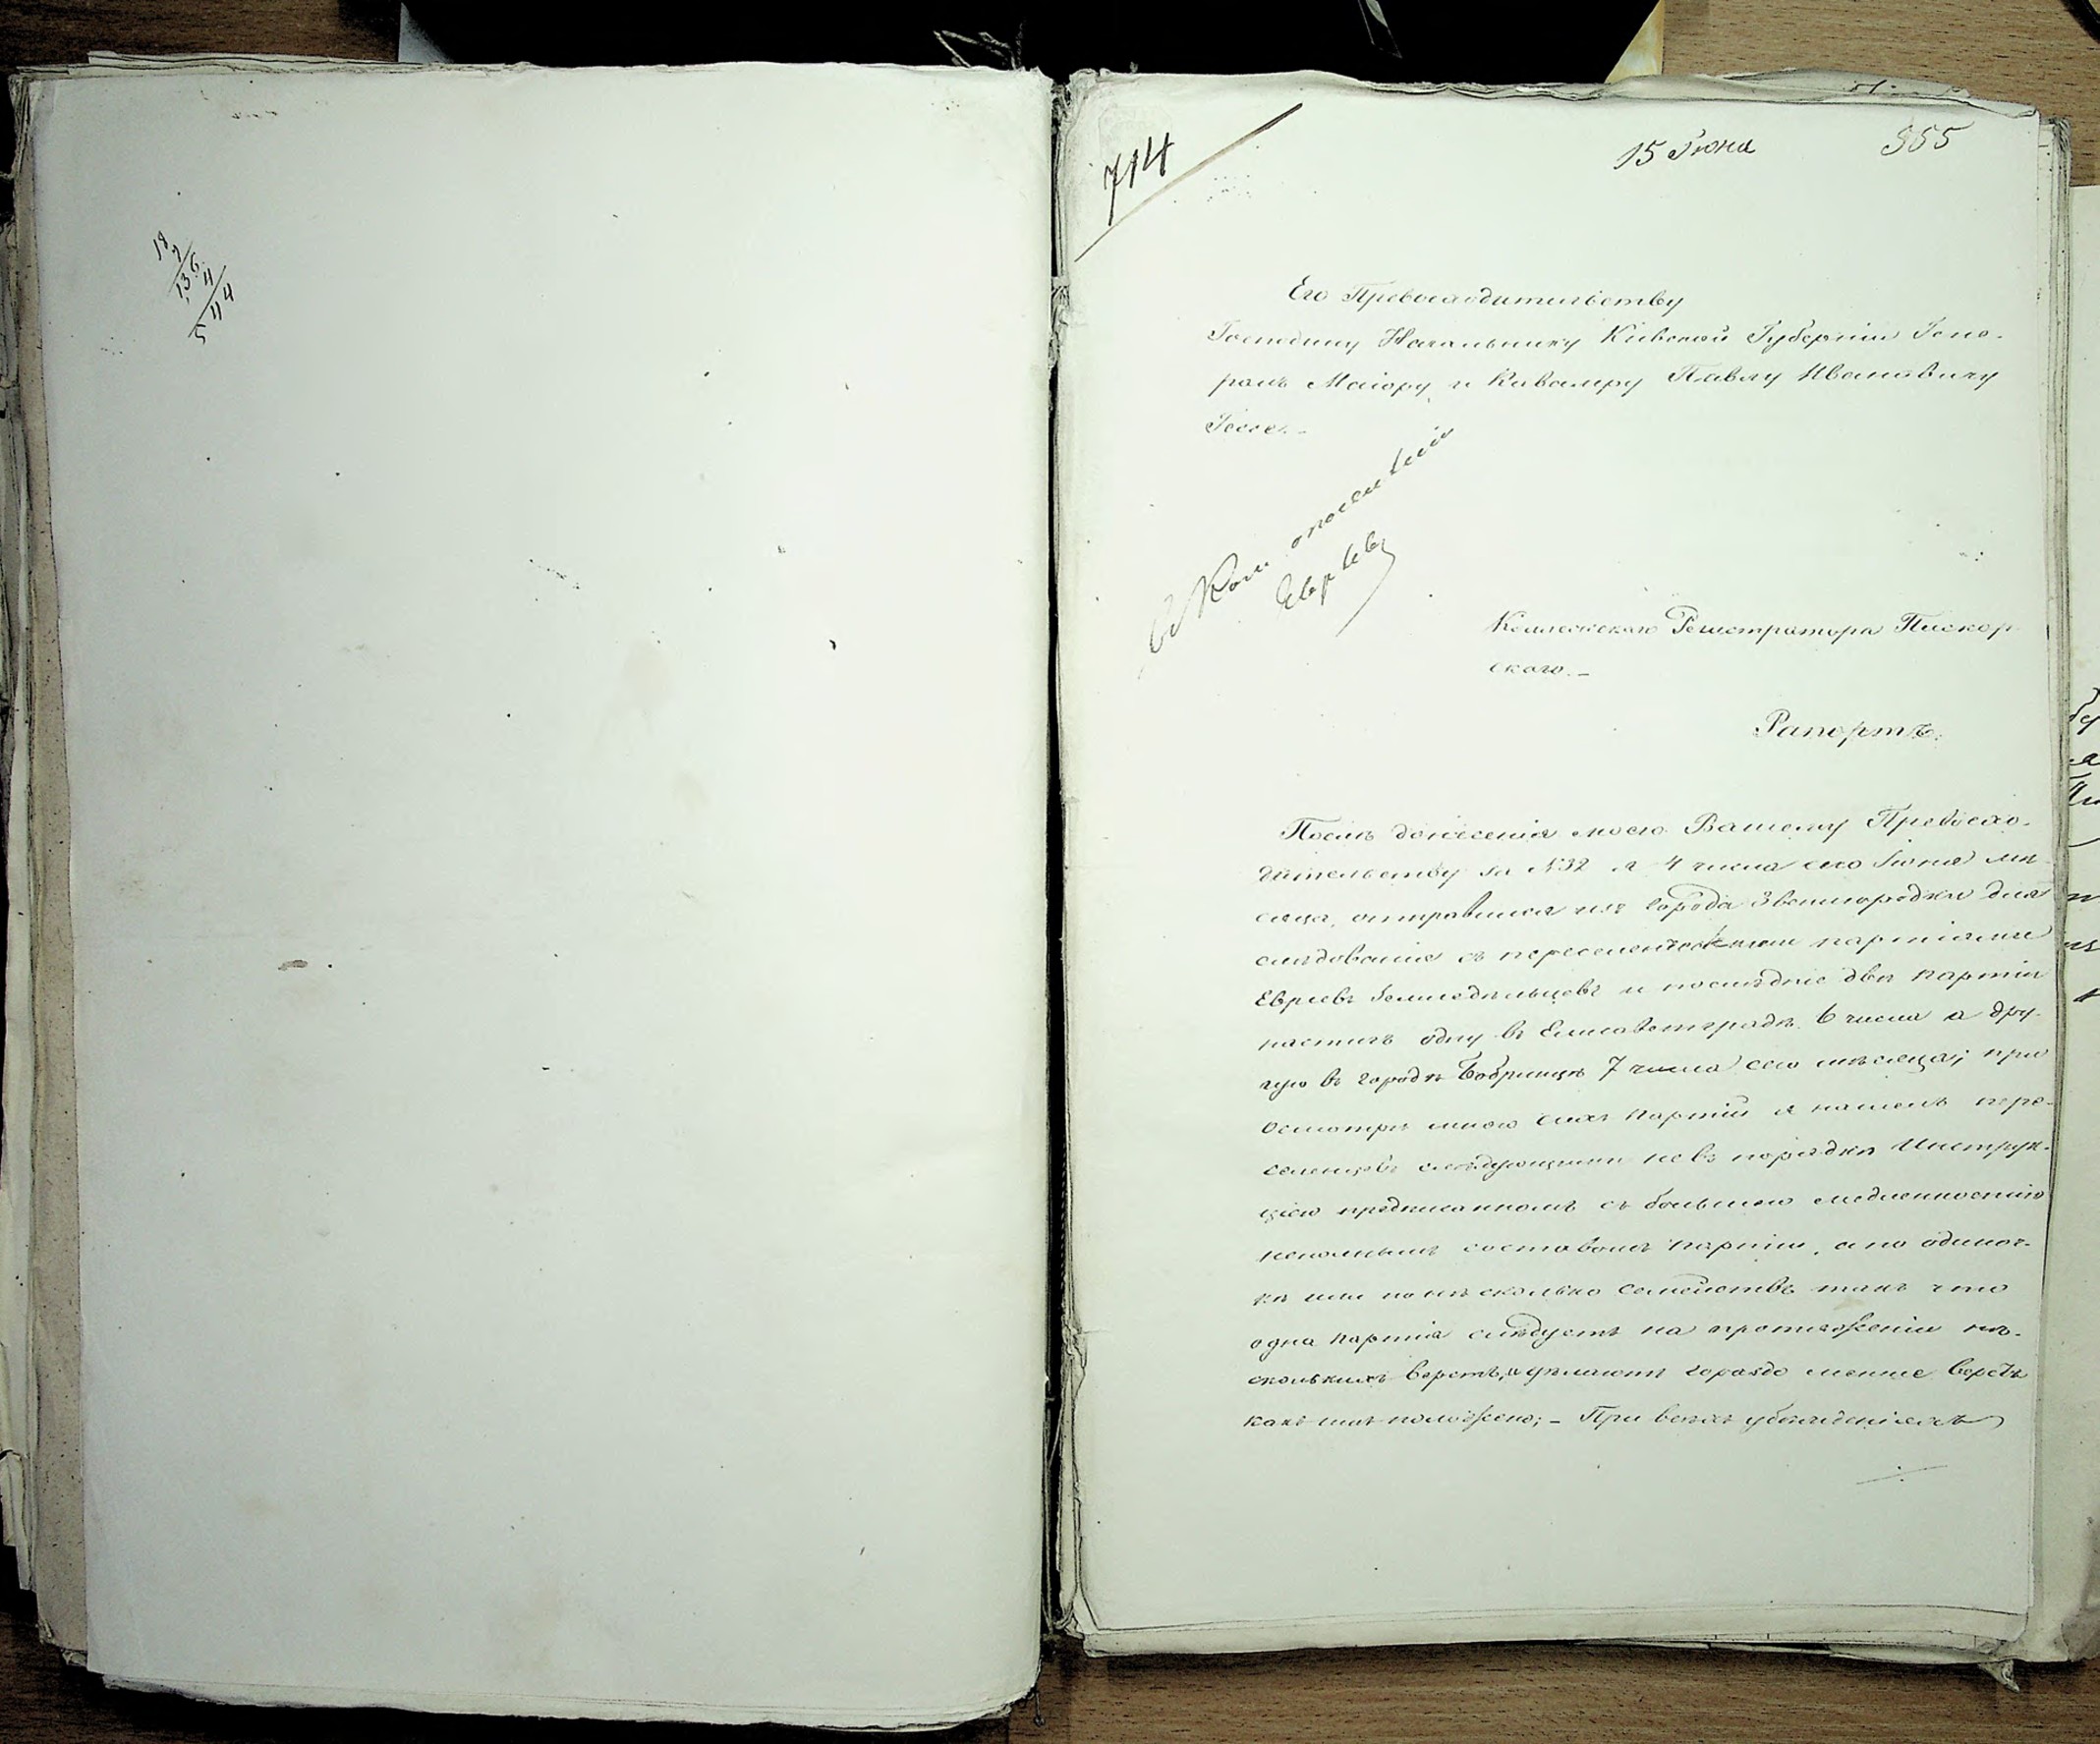 18 7
136 4
544
714
15 Июня
555
Его Превосходительству
Господину Начальнику Киевской Губернии Гене-
ралъ Маіору и Кавалеру Павлу Ивановичу
Гессе.-
Въ Ком о поселеніи
Евреевъ
Коллежскаго Регистратора Пискор
скаго.-
Рапортъ.
Послѣ донесенія моего Вашему Превосхо-
дительству за №32 я 4 числа сего Іюня мѣ
сяца, отправился изъ города Звенигородки для
слѣдованія съ переселенческими партіями
Евреевъ Земледѣльцевъ и послѣдніе двѣ партіи
настигъ одну въ Елисаветградѣ 6 числа а дру-
гую въ городѣ Бобринцѣ 7 числа сего мѣсяца; при
осмотрѣ мною сихъ партій я нашелъ пере-
селенцевъ слѣдующими не въ порядкѣ Инструк-
ціею предписанномъ съ большею медленностію
неполнымъ составомъ партіи, а по одиноч-
кѣ или по нѣсколько семействъ такъ что
одна партія слѣдуетъ на протяженіи нѣ-
сколькихъ верстъ, и дѣлаютъ гораздо менѣе верстъ
какъ имъ положено; - При всѣхъ убѣжденіяхъ